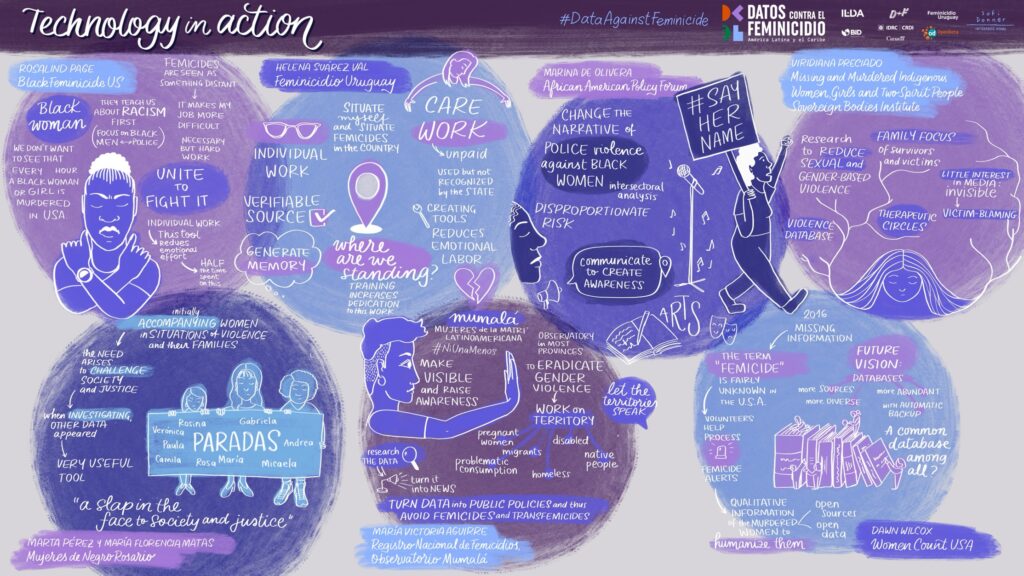 Technology in action
#DataAgainstFeminicide
DATOS CONTRA EL
FEMINICIDIO
América Latina y el Caribe
ILDA
BID
Feminicidio
Uruguay
IDRC CRDI
Canada
Sofi
Donner
ROSALIND PAGE
Black Femicide US
Black
Woman
FEMICIDES
ARE SEEN AS
SOMETHING DISTANT
THEY TEACH US
ABOUT RACISM
FIRST
(FOCUS ON BLACK
MEN ↔ POLICE)
IT MAKES MY
JOB MORE
DIFFICULT
NECESSARY
BUT HARD
WORK
WE DON'T WANT
TO SEE THAT
EVERY HOUR
A BLACK WOMAN
OR GIRL IS
MURDERED
IN USA
UNITE
TO
FIGHT IT
INDIVIDUAL WORK
This tool
Reduces
emotional
effort
HALF
the time
spent
on this
HELENA SUÁREZ VAL
Feminicidio Uruguay
SITUATE
myself
and SITUATE
FEMICIDES
IN the COUNTRY
INDIVIDUAL
WORK
VERIFIABLE
SOURCE
GENERATE
MEMORY
where
are we
standing?
TRAINING
INCREASES
DEDICATION
to this WORK
CARE
WORK
unpaid
USED but not
RECOGNIZED
by the STATE
CREATING
TOOLS
REDUCES
EMOTIONAL
LABOR
MARINA DE OLIVERA
African American Policy Forum
CHANGE THE
NARRATIVE of
POLICE violence
against BLACK
WOMEN
intersectoral
analysis
DISPROPORTIONATE
RISK
communicate
to CREATE
AWARENESS
#SAY
HER
NAME
ARTS
VIRIDIANA PRECIADO
Missing and Murdered Indigenous
Women, Girls and Two-Spirit People
Sovereign Bodies Institute
Research
to REDUCE
SEXUAL and
GENDER-BASED
VIOLENCE
FAMILY FOCUS
of survivors
and victims
LITTLE INTEREST
in MEDIA:
invisible
VICTIM-BLAMING
VIOLENCE
DATABASE
THERAPEUTIC
CIRCLES
initially
ACCOMPANYING WOMEN
in SITUATIONS of VIOLENCE
and their FAMILIES
the NEED
ARISES
to CHALLENGE
SOCIETY
and JUSTICE
when INVESTIGATING,
OTHER DATA
appeared
VERY USEFUL
TOOL
Rosina
Gabriela
Verónica
PARADAS
Paula
Andrea
Camila
Rosa María
Micaela
"a slap in the
face to society and justice"
MARTA PÉREZ Y MARÍA FLORENCIA MATAS
Mujeres de Negro Rosario
mumalá
MUJERES de la MATRIA
LATINOAMERICANA
#NiUnaMenos
MAKE
VISIBLE
and RAISE
AWARENESS
OBSERVATORY
in MOST
PROVINCES
to ERADICATE
GENDER
VIOLENCE
WORK on
TERRITORY
let the
territories
SPEAK
pregnant
women
migrants
disabled
native
people
problematic
consumption
homeless
research
THE DATA
turn it
into NEWS
TURN DATA into PUBLIC POLICIES and thus
AVOID FEMICIDES and TRANSFEMICIDES
MARÍA VICTORIA AGUIRRE
Registro Nacional de Femicidios,
Observatorio Mumalá
2016
MISSING
INFORMATION
THE TERM
"FEMICIDE"
IS FAIRLY
UNKNOWN in
the U.S.A.
VOLUNTEERS
HELP
PROCESS
FEMICIDE
ALERTS
QUALITATIVE
INFORMATION
of the MURDERED
WOMEN to
humanize them
open
sources
open
data
FUTURE
VISION:
DATABASES
more SOURCES
more DIVERSE
more ABUNDANT
with AUTOMATIC
BACKUP
A common
database
among
all?
DAWN WILCOX
Women Count USA